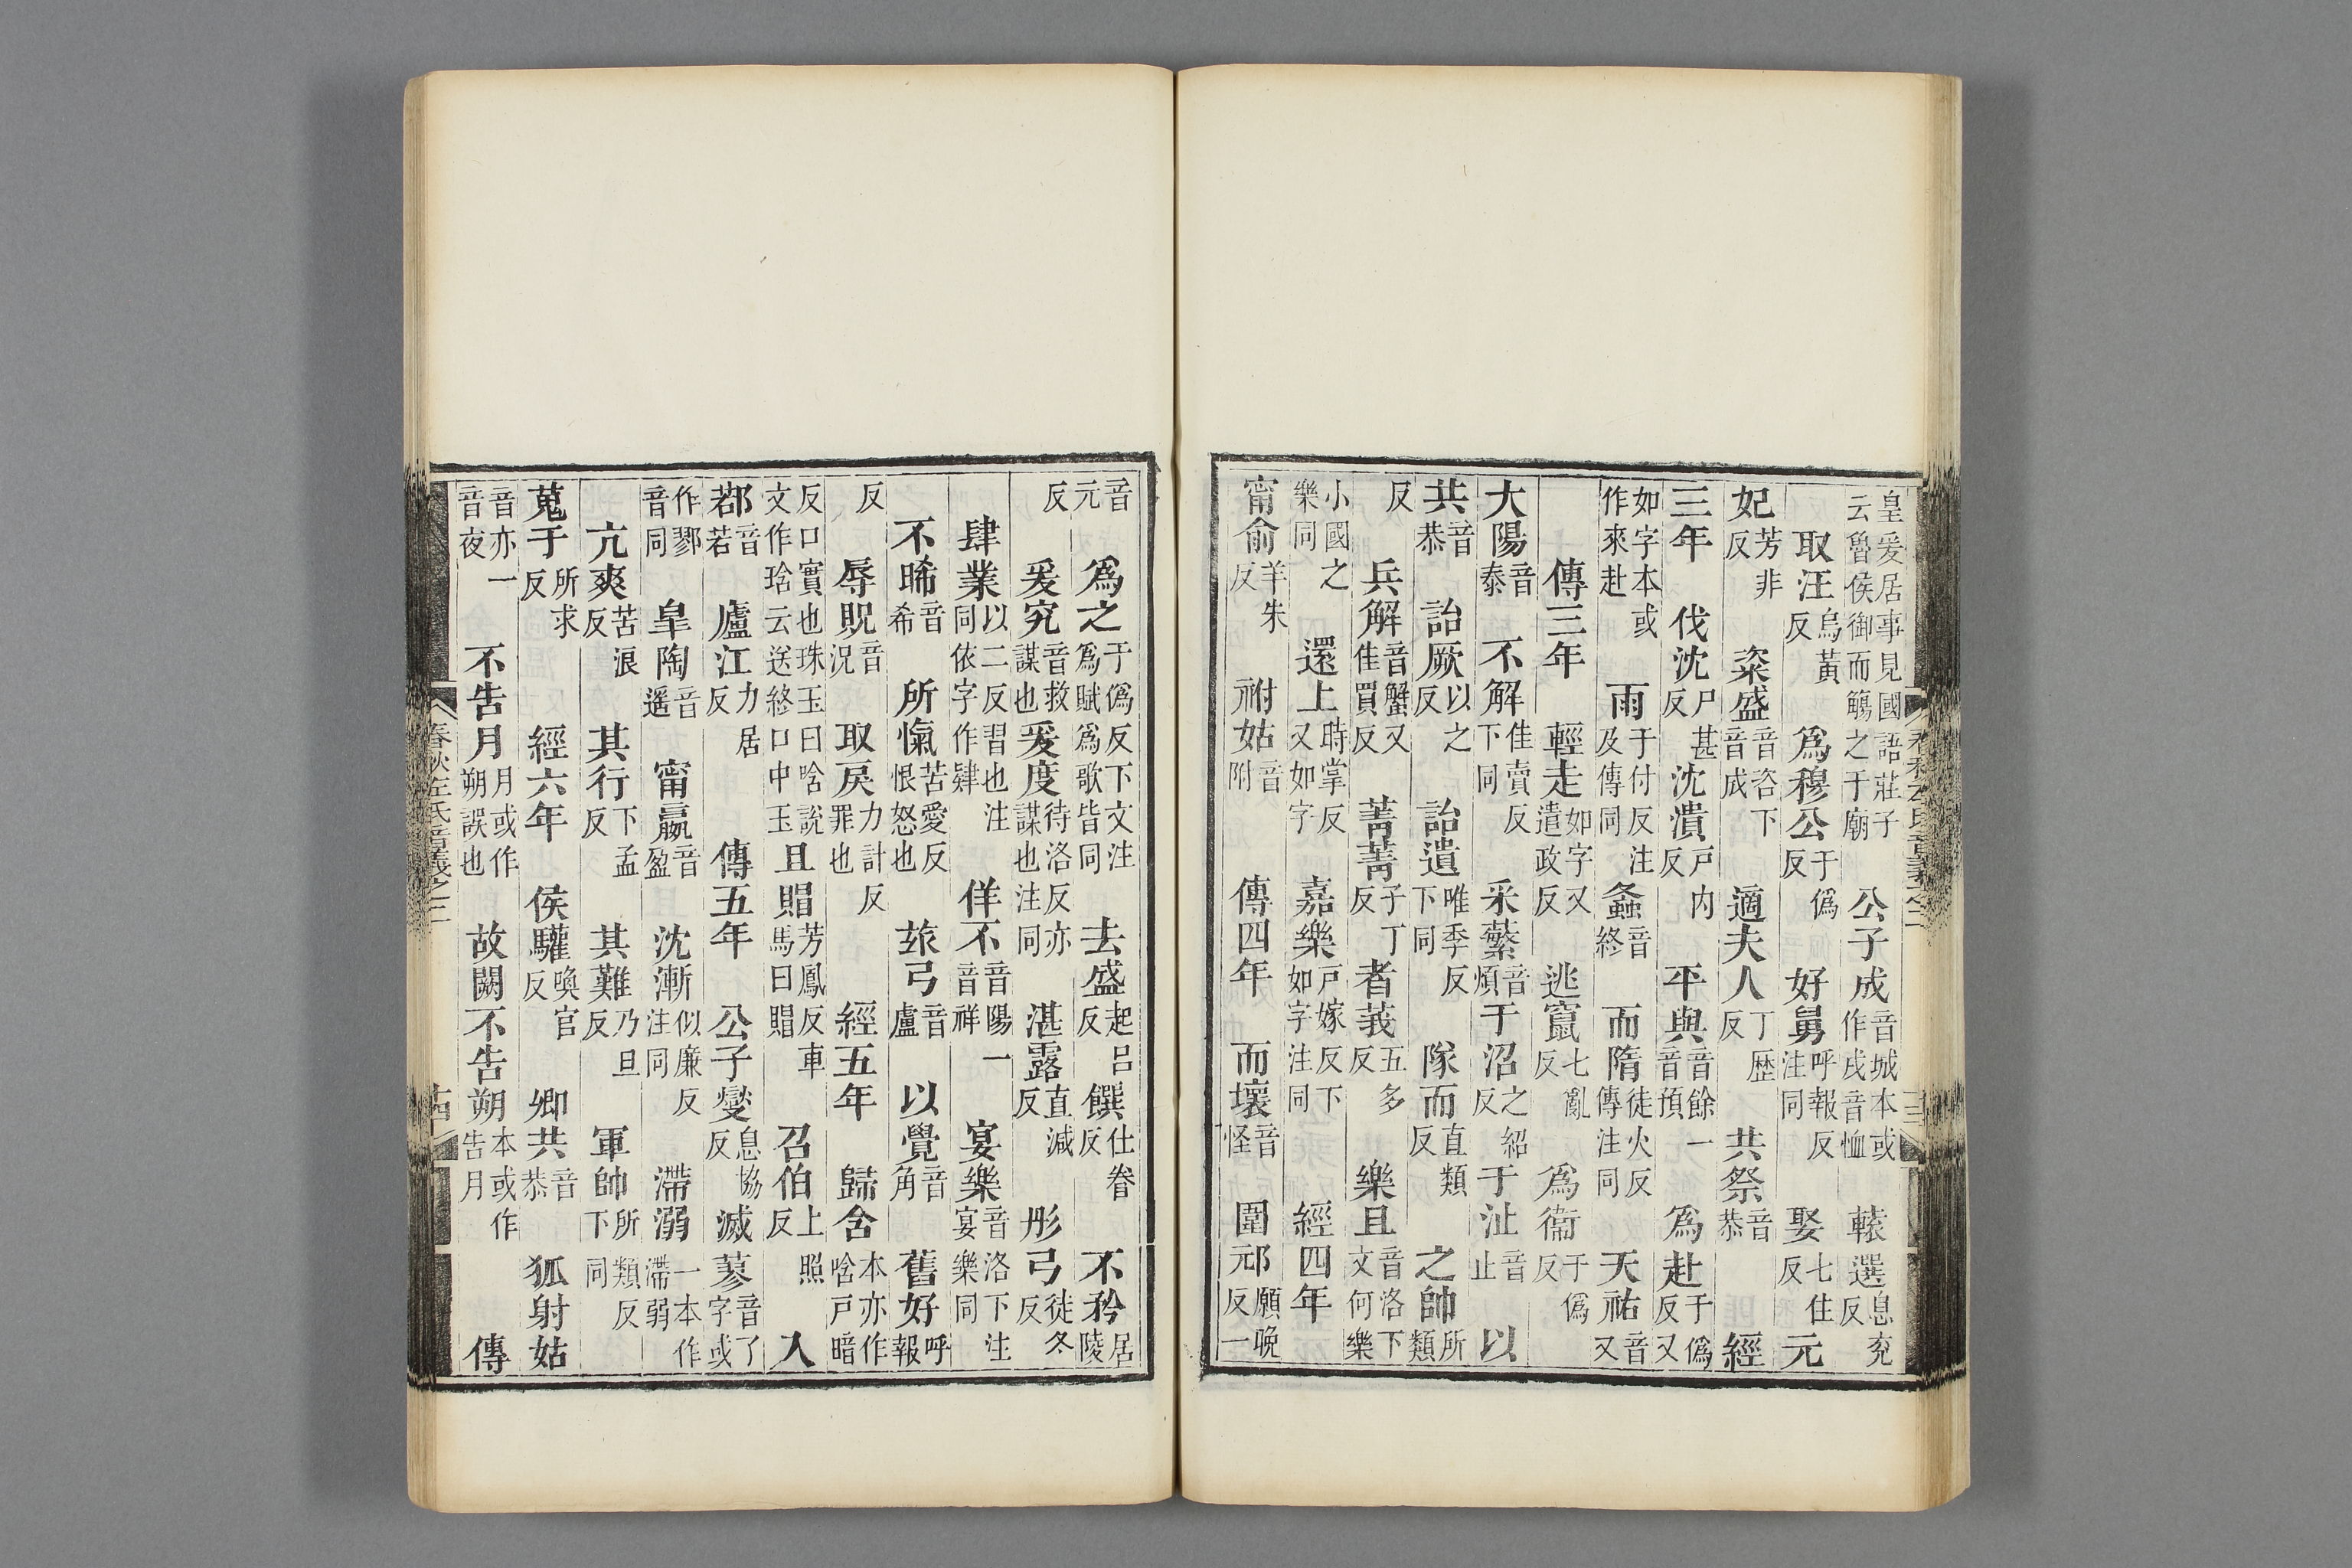 皇爰居事見國語莊子云魯侯御而觴之于廟 公子成音城本或作戌音恤 轅選息兖反
取汪烏黃反 爲穆公于僞反 好舅呼報反注同 娶七住反 元
妃芳非反 粢盛音咨下音成 適夫人丁歷反 共祭音恭 經
三年 伐沈尸甚反 沈潰戶内反 平與音餘一音預 爲赴于僞反又
如字本或作來赴 雨于付反注及傳同 螽音終 而隋徒火反傳注同 天祐音又
傳三年 輕走如字又遣政反 逃竄七亂反 爲衞于僞反
大陽音泰 不解佳賣反下同 采蘩音煩 于沼之紹反 于沚音止 以
共音恭 詒厥以之反 詒遺唯季反下同 隊而直類反 之帥所類
反 兵解音蟹又佳買反 菁菁子丁反 者莪五多反 樂且音洛下文何樂
小國樂同之 還上時掌反又如字 嘉樂戶嫁反下如字注同 經四年
甯俞羊朱反 祔姑音附 傳四年 而壞音怪 圍邧願晚反一
音元 爲之于僞反下文注爲賦爲歌皆同 去盛起呂反 饌仕眷反 不矜居陵
反 爰究音救謀也 爰度待洛反亦謀也注同 湛露直減反 彤弓徒冬反
肄業以二反習也注同依字作肄 佯不音陽一音祥 宴樂音洛下注宴樂同
不晞音希 所愾苦愛反恨怒也 玈弓音盧 以覺音角 舊好呼報
反 辱貺音況 取戾力計反罪也 經五年 歸含本亦作唅戶暗
反口實也珠玉曰唅說文作琀云送終口中玉 且賵芳鳳反車馬曰賵 召伯上照反 入
鄀音若 廬江力居反 傳五年 公子燮息協反 滅蓼音了字或
作鄝音同 皐陶音遥 甯嬴音盈 沈漸似廉反注同 滯溺一本作滯弱
亢爽苦浪反 其行下孟反 其難乃旦反 軍帥所類反下同
蒐于所求反 經六年 侯驩喚官反 卿共音恭 狐射姑
音亦一音夜 不告月月或作朔誤也 故闕不告朔本或作告月 傳
春秋左氏音義之二